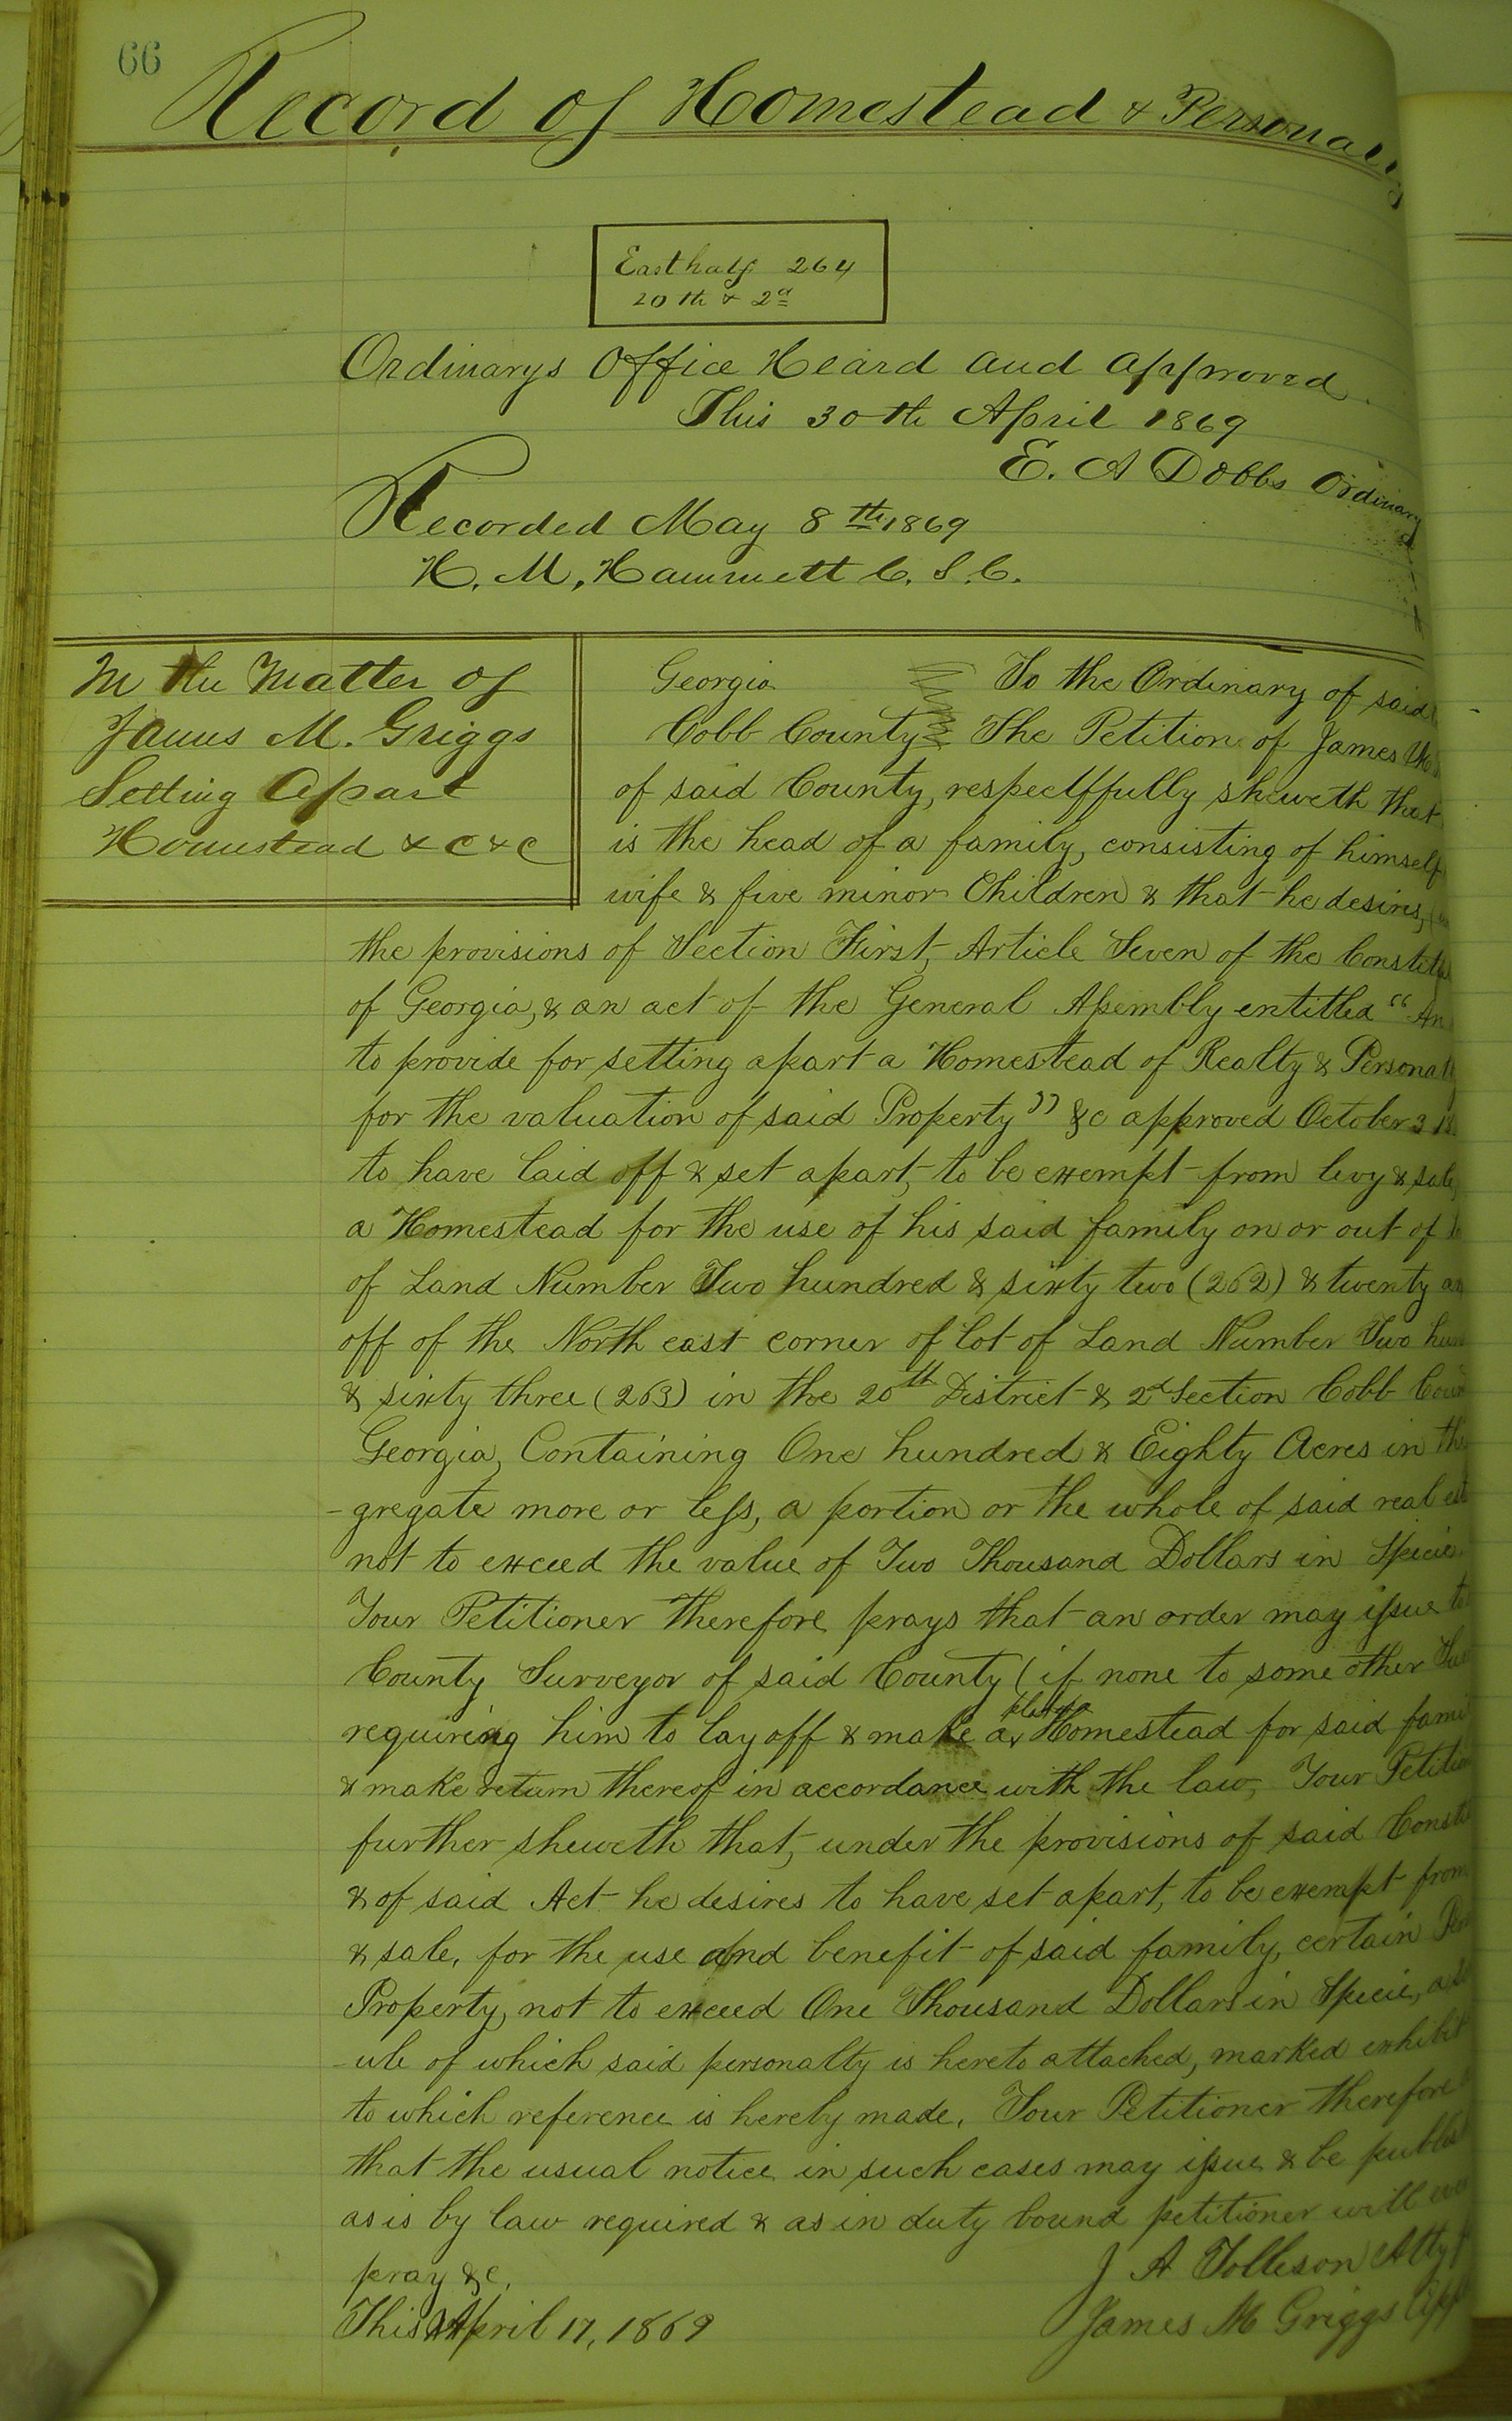 66
Record of Homestead & Personal
East half 264
20th & 2d
Ordinarys Office Heard and approved
This 30th April 1869
E. A Dobbs Ordinary
Recorded May 8th 1869
H. M. Hammett C. S. C.
In the Matter of
James M. Griggs
Setting Apart
Homestead &c &c
Georgia To the Ordinary of said
Cobb County The Petition of James M
of said County, respectffully sheweth that
is the head of a family, consisting of himself
wife & five minor Children & that he desires,
the provisions of Section First, Article Seven of the Constitu
of Georgia, & an act of the General Assembly entitled "An
to provide for setting apart a Homestead of Realty & Personalty
for the valuation of said Property" &c approved October 3
to have laid off & set apart, to be exempt from levy & sale,
a Homestead for the use of his said family on or out of
of Land Number Two hundred & sixty two (262) & twenty
off of the North east corner of lot of Land Number Two hun
& sixty three (263) in the 20th District & 2d Section Cobb Coun
Georgia, Containing One hundred & Eighty Acres in the
-gregate more or less, a portion or the whole of said real est
not to exceed the value of Two Thousand Dollars in Specie.
Your Petitioner therefore prays that an order may issue to
County Surveyor of said County (if none to some other Sur
requireing him to lay off & make a plat of Homestead for said fami
& make return thereof in accordance with the law, Your Petition
further sheweth that, under the provisions of said Consti
& of said Act he desires to have set apart, to be exempt from
& sale, for the use and benefit of said family, certain Per
Property, not to exceed One Thousand Dollars in Specie, a
-ule of which said personalty is hereto attached, marked exhibit
to which reference is hereby made. Your Petitioner therefore
that the usual notice in such cases may issue & be publis
as is by law required & as in duty bound petitioner will ever
pray &c. J A Tolleson Atty
This April 17, 1869 James M Griggs App